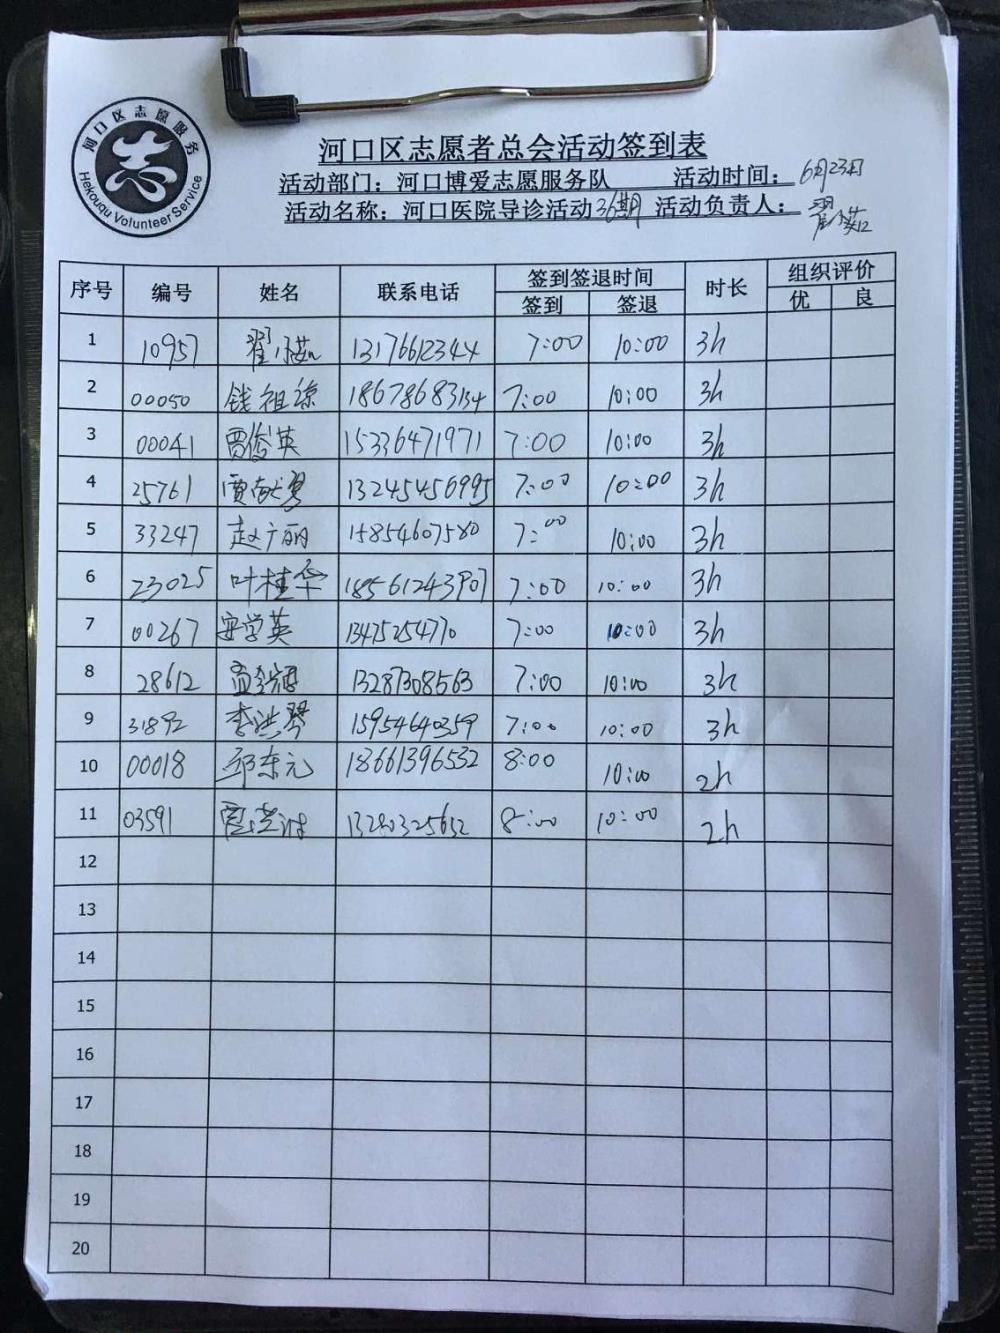 河口区志愿服务
Hekouqu Volunteer Service
河口区志愿者总会活动签到表
活动部门：河口博爱志愿服务队 活动时间：6月23日
活动名称：河口医院导诊活动36期 活动负责人：翟小茹
序号 编号 姓名 联系电话 签到签退时间 时长 组织评价
签到 签退 优 良
1 10957 翟小茹 13176612344 7:00 10:00 3h
2 00050 钱祖琼 18678683134 7:00 10:00 3h
3 00041 贾俊英 15336471971 7:00 10:00 3h
4 25761 贾献勇 13245456995 7:00 10:00 3h
5 33247 赵广丽 15854607580 7:00 10:00 3h
6 23025 叶桂华 18561243907 7:00 10:00 3h
7 00267 安学英 13475254770 7:00 10:00 3h
8 28612 13287308563 7:00 10:00 3h
9 31892 李洪琴 15954640359 7:00 10:00 3h
10 00018 邱东元 18661396532 8:00 10:00 2h
11 03591 8:00 10:00 2h
12
13
14
15
16
17
18
19
20